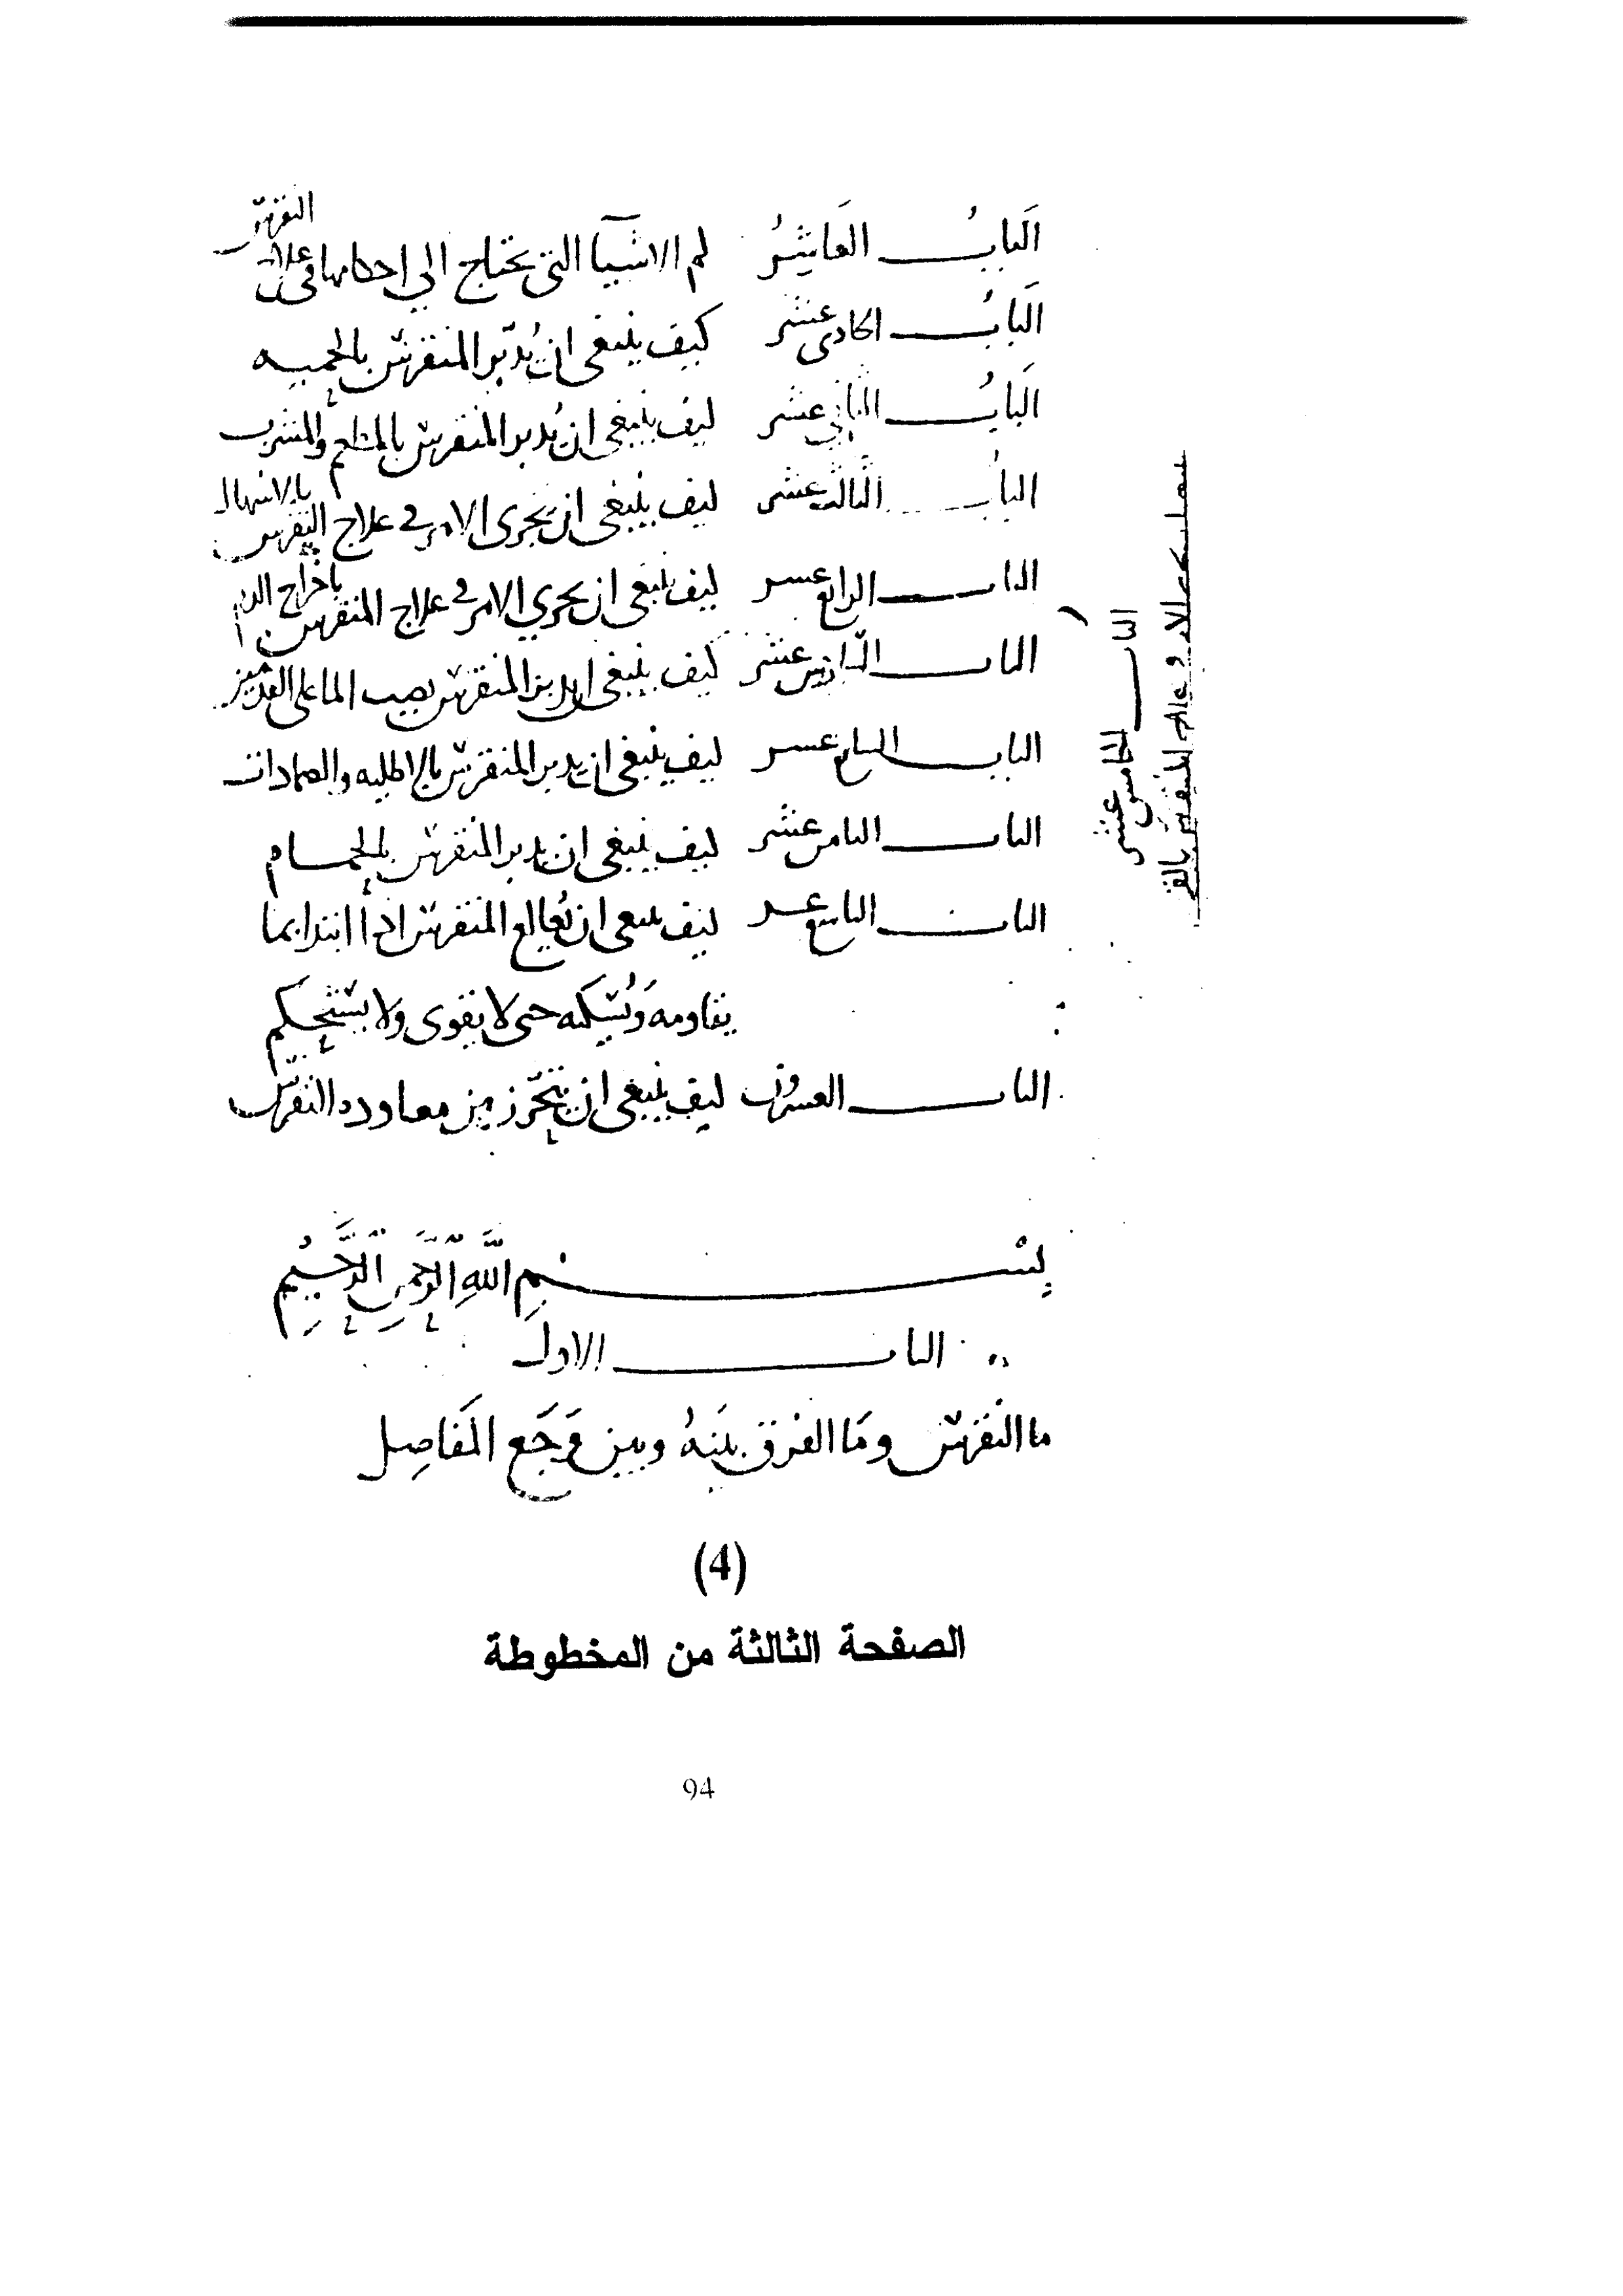 اَلبابُ العَاشِرُ لم الاشيآ التى يحتاج الي احكامها فى علاج النقرس
اَلبَابُ الحادى عشر كيف ينبغى ان يُدبّر المنقرس بالحميه
اَلبَابُ الثاني عشر كيف ينبغى ان يُدبر المنقرس بالمطعم والمشرب
البابُ الثالث عشر كيف ينبغى ان يجرى الامر في علاج النقرس بالاسهال
الباب الرابع عسر كيف ينبغى ان يجري الامر في علاج المنقرس باخراج الدم
الباب السادس عشر كيف ينبغى ان يدبر المنقرس بصب الما على القدمين
الباب السابع عسر كيف ينبغى ان يدبر المنقرس بالاطليه والضمادات
الباب الثامن عشر كيف ينبغى ان يدبر المنقرس بالحمام
الباب التاسع عسر كيف ينبغى ان يُعالج المنقرس اذا ابتدا بما
يقاومه وَيُسَكنه حتى لا يقوى ولا يسْتَحكم
الباب العسرون كيف ينبغى ان يتحَّرز من معاوده النقرس
الباب الخامس عشر
الامر فى علاج المنقرس بالقى
بِسْمِ اللَّهِ الرَّحمَنِ الرَّحِيمِ
الباب الاول
ما النقرس وَمَا الفرْق بينَهُ وبين وَجَع المَفاصِل
(4)
الصفحة الثالثة من المخطوطة
94